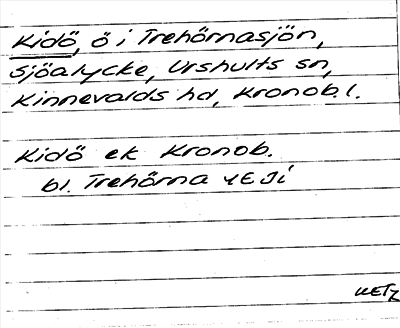 Kidö, ö i Trehörnasjön,
Sjöalycke, Urshults sn,
Kinnevalds hd, Kronob. l.
Kidö ek Kronob.
bl. Trehörna 4E